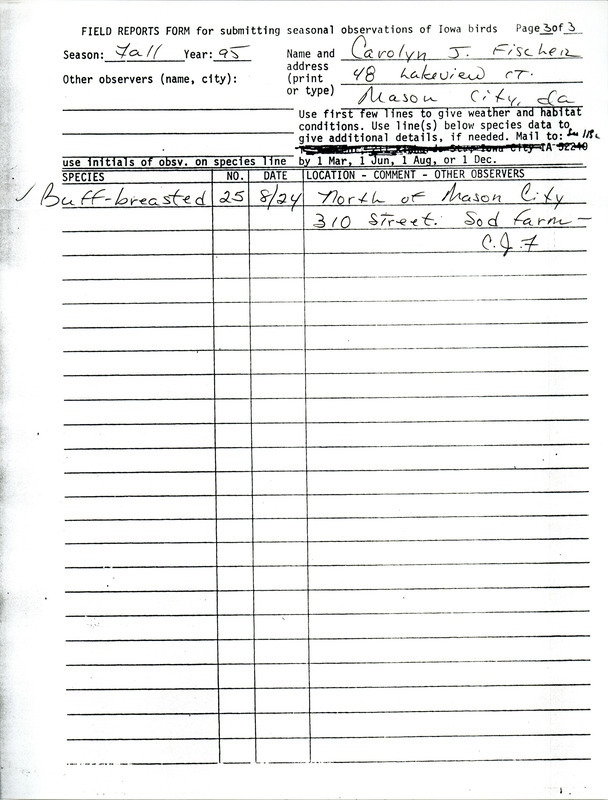 FIELD REPORTS FORM for submitting seasonal observations of Iowa birds Page 3 of 3
Season: Fall Year: 95
Name and address (print or type) Carolyn J. Fischer
48 Lakeview CT.
Mason City, Ia
Other observers (name, city):
Use first few lines to give weather and habitat
conditions. Use line(s) below species data to
give additional details, if needed. Mail to:
Iowa City IA 52240
use initials of obsv. on species line by 1 Mar, 1 Jun, 1 Aug, or 1 Dec.
SPECIES NO. DATE LOCATION - COMMENT - OTHER OBSERVERS
✓ Buff-breasted 25 8/24 North of Mason City
310 Street. Sod Farm -
C.J.F